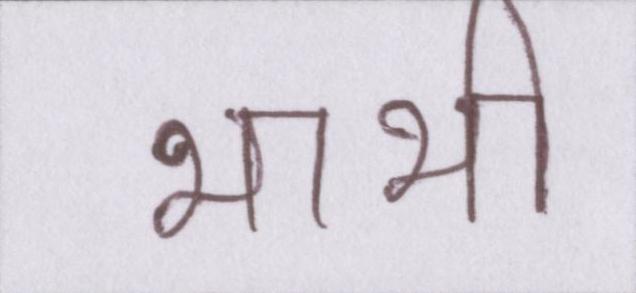 भाभी